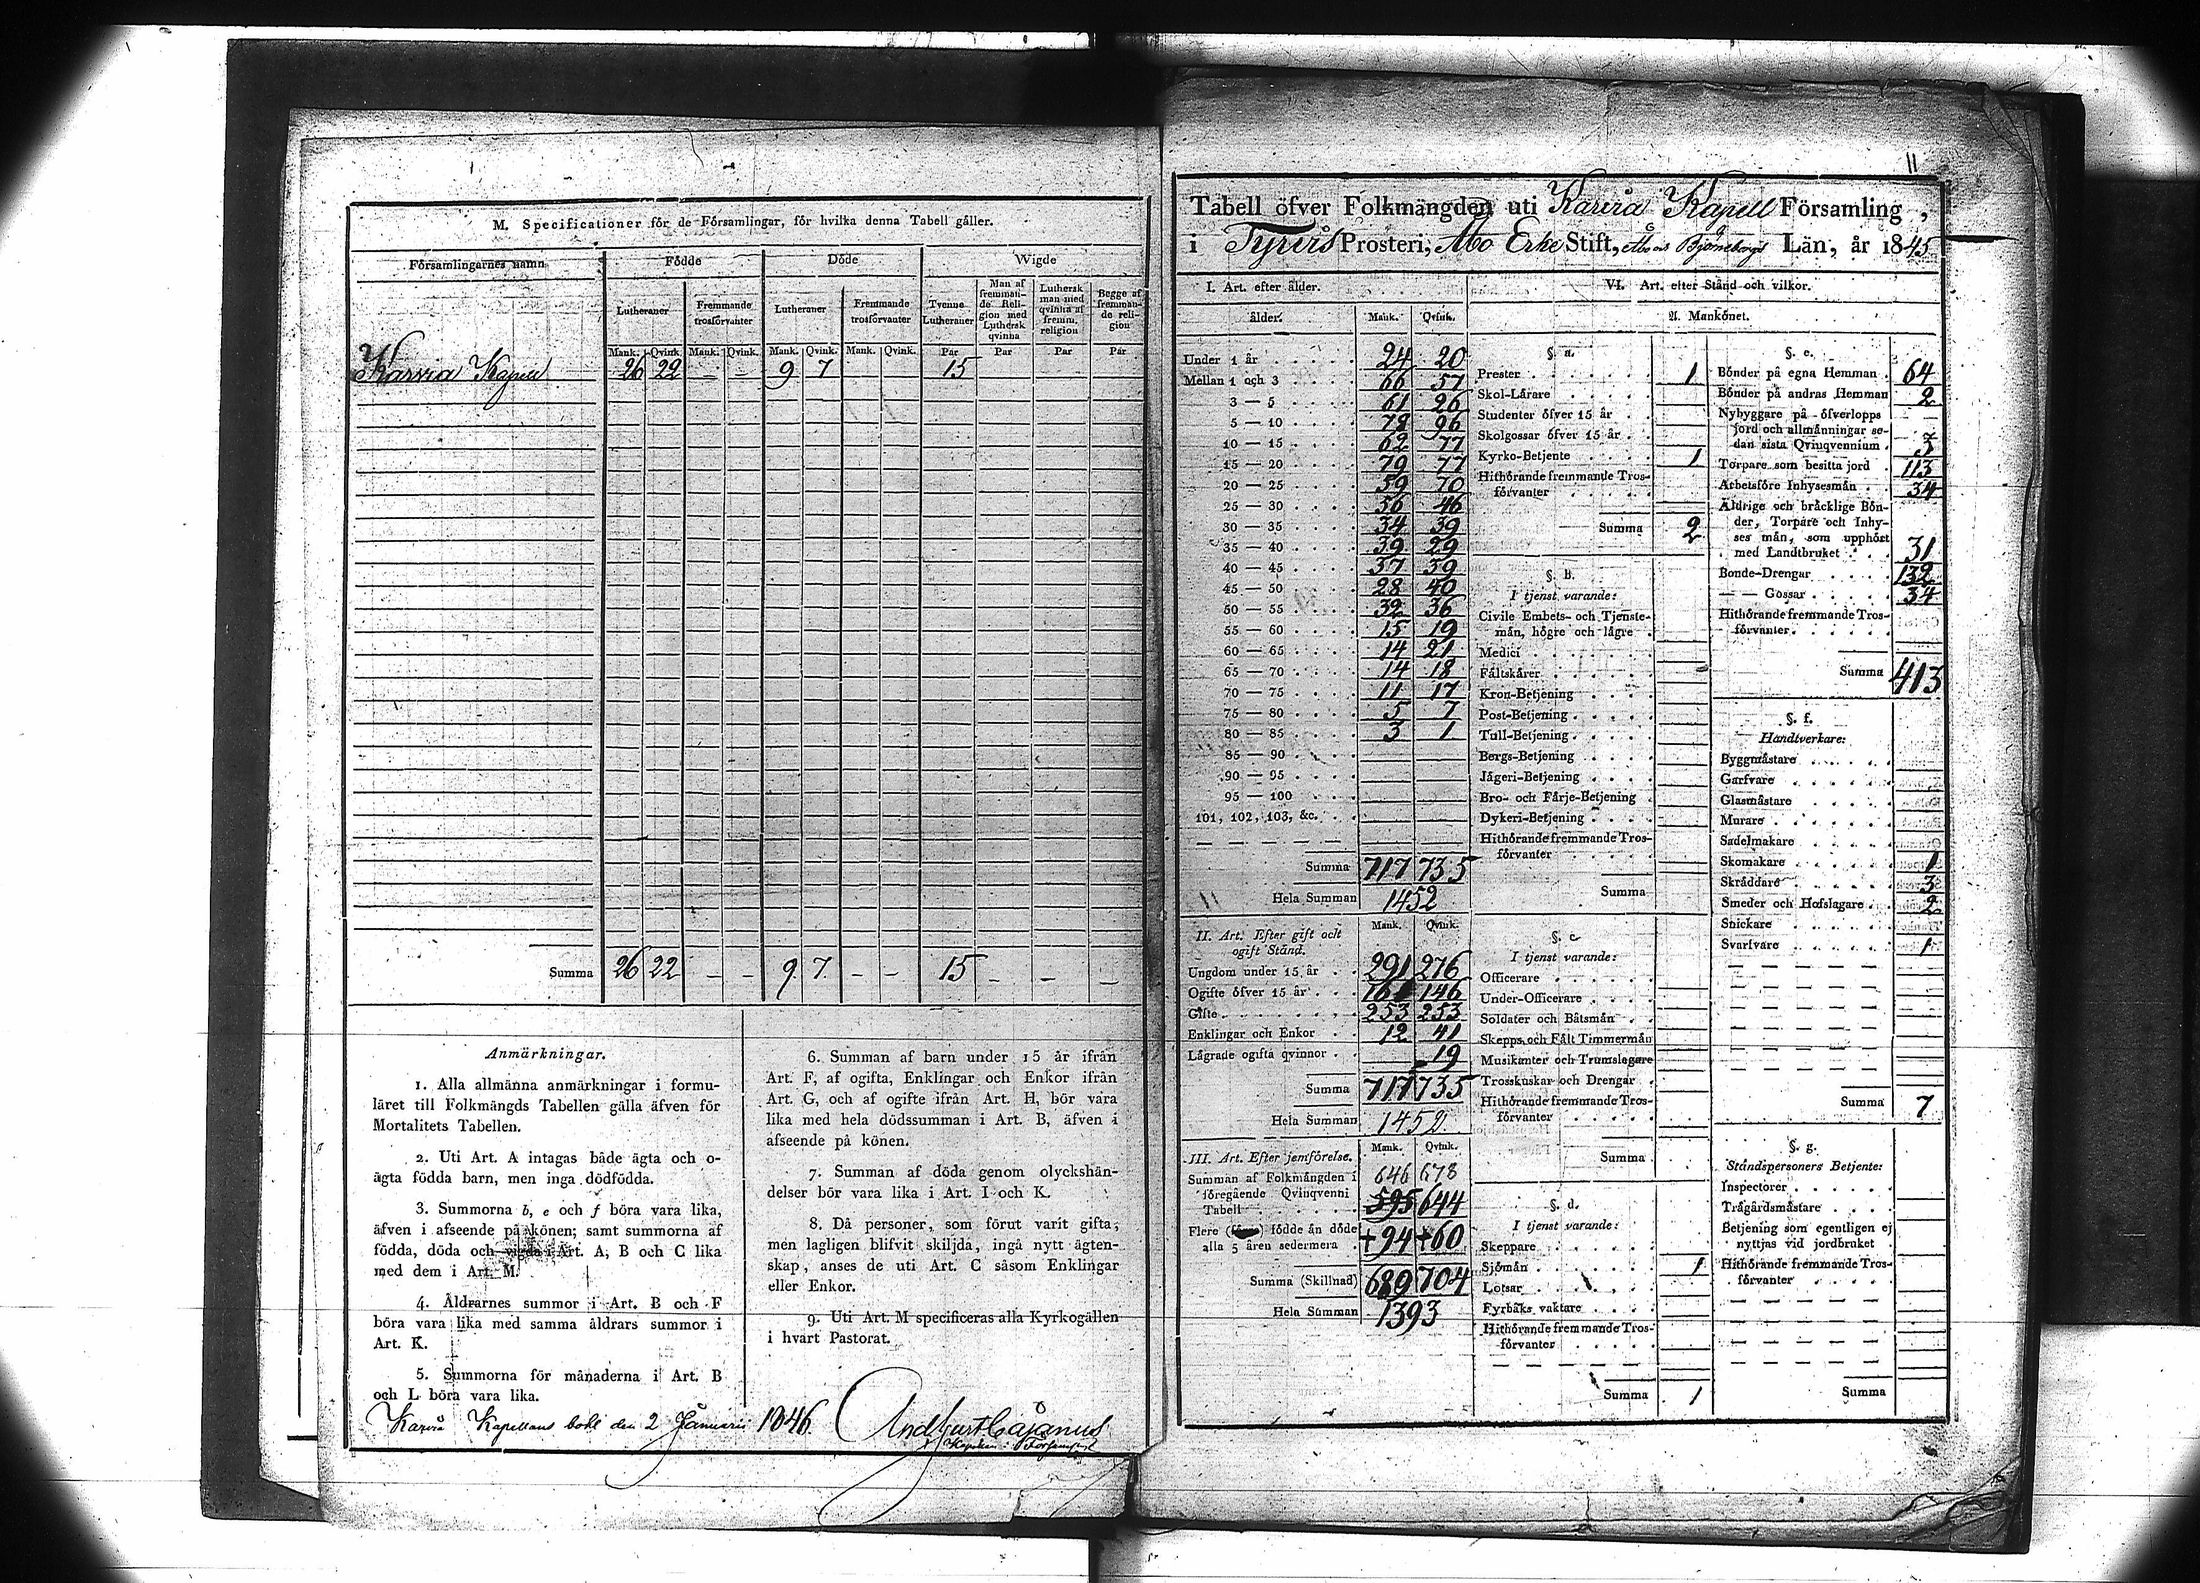 M. Specificationer för de Församlingar, för hvilka denna Tabell gäller.
Församlingarnes namn
Födde
Döde
Wigde
Lutheraner
Fremmande trosförvanter
Lutheraner
Fremmande trosförvanter
Tvenne Lutheraner
Man af fremmande Religion med Luthersk qvinna
Luthersk man med qvinna af fremm. religion
Begge af fremmande religion
Mank. Qvink. Mank. Qvink. Mank. Qvink. Mank. Qvink. Par Par Par Par
Karvia Kapell 26 22 — — 9 7 15
Summa 26 22 — — 9 7 — — 15 — — —
Anmärkningar.
1. Alla allmänna anmärkningar i formu-
läret till Folkmängds Tabellen gälla äfven för
Mortalitets Tabellen.
2. Uti Art. A intagas både ägta och o-
ägta födda barn, men inga dödfödda.
3. Summorna b, e och f böra vara lika,
äfven i afseende på könen; samt summorna af
födda, döda och vigda i Art. A, B och C lika
med dem i Art. M.
4. Åldrarnes summor i Art. B och F
böra vara lika med samma åldrars summor i
Art. K.
5. Summorna för månaderna i Art. B
och L böra vara lika.
6. Summan af barn under 15 år ifrån
Art. F, af ogifta, Enklingar och Enkor ifrån
Art. G, och af ogifte ifrån Art. H, bör vara
lika med hela dödssumman i Art. B, äfven i
afseende på könen.
7. Summan af döda genom olyckshän-
delser bör vara lika i Art. I och K.
8. Då personer, som förut varit gifta,
men lagligen blifvit skiljda, ingå nytt ägten-
skap, anses de uti Art. C såsom Enklingar
eller Enkor.
9. Uti Art. M specificeras alla Kyrkogällen
i hvart Pastorat.
Karvia Kapellans bohl den 2 Januarii 1846.
11
Tabell öfver Folkmängden uti Karvia Kapell Församling,
i Tyrvis Prosteri, Åbo Erke Stift, Åbo och Björneborgs Län, år 1845
I. Art. efter ålder.
ålder. Mank. Qvink.
Under 1 år 24 20
Mellan 1 och 3 66 57
3 — 5 61 26
5 — 10 78 96
10 — 15 62 77
15 — 20 79 77
20 — 25 59 70
25 — 30 56 46
30 — 35 34 39
35 — 40 39 29
40 — 45 37 39
45 — 50 28 40
50 — 55 32 36
55 — 60 15 19
60 — 65 14 21
65 — 70 14 18
70 — 75 11 17
75 — 80 5 7
80 — 85 3 1
85 — 90
90 — 95
95 — 100
101, 102, 103, &c.
Summa 717 735
Hela Summan 1452
II. Art. Efter gift och
ogift Stånd.
Mank. Qvink.
Ungdom under 15 år 291 276
Ogifte öfver 15 år 161 146
Gifte 253 253
Enklingar och Enkor 12 41
Lägrade ogifta qvinnor — 19
Summa 717 735
Hela Summan 1452
III. Art. Efter jemförelse. Mank. Qvink.
Summan af Folkmängden i 646 678
föregående Qvinqvenni
Tabell 595 644
Flere födde än döde
alla 5 åren sedermera +94 +60
Summa (Skillnad) 689 704
Hela Summan 1393
VI. Art. efter Stånd och vilkor.
A. Mankönet.
§. a.
Prester 1
Skol-Lärare
Studenter öfver 15 år
Skolgossar öfver 15 år
Kyrko-Betjente 1
Hithörande fremmande Tros-
förvanter
Summa 2
§. B.
I tjenst varande:
Civile Embets- och Tjenste-
män, högre och lägre
Medici
Fältskärer
Kron-Betjening
Post-Betjening
Tull-Betjening
Bergs-Betjening
Jägeri-Betjening
Bro- och Färje-Betjening
Dykeri-Betjening
Hithörande fremmande Tros-
förvanter
Summa
§. c.
I tjenst varande:
Officerare
Under-Officerare
Soldater och Båtsmän
Skepps och Fält Timmermän
Musikanter och Trumslagare
Trosskuskar och Drengar
Hithörande fremmande Tros-
förvanter
Summa
§. d.
I tjenst varande:
Skeppare
Sjömän 1
Lotsar
Fyrbåks vaktare
Hithörande fremmande Tros-
förvanter
Summa 1
§. e.
Bönder på egna Hemman 64
Bönder på andras Hemman 2
Nybyggare på öfverlopps
jord och allmänningar se-
dan sista Qvinqvennium 3
Torpare som besitta jord 113
Arbetsföre Inhysesmän 34
Åldrige och bräcklige Bön-
der, Torpare och Inhy-
ses män, som upphört
med Landtbruket 31
Bonde-Drengar 132
— — Gossar 34
Hithörande fremmande Tros-
förvanter
Summa 413
§. f.
Handtverkare:
Byggmästare
Garfvare
Glasmästare
Murare
Sadelmakare
Skomakare 1
Skräddare 3
Smeder och Hofslagare 2
Snickare
Svarfvare 1
Summa 7
§. g.
Ståndspersoners Betjente:
Inspectorer
Trägårdsmästare
Betjening som egentligen ej
nyttjas vid jordbruket
Hithörande fremmande Tros-
förvanter
Summa